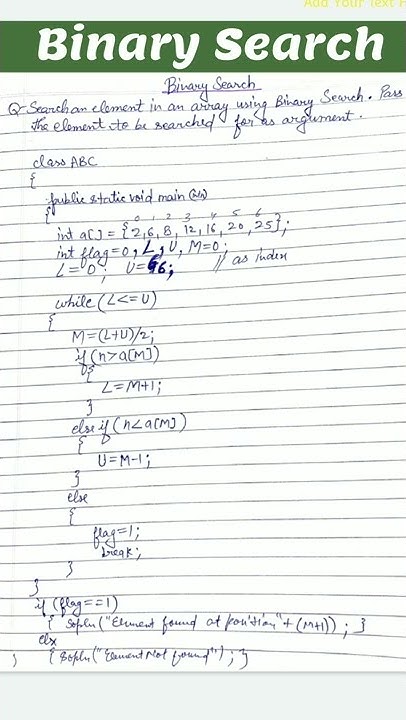 Add Your Text H
Binary Search
Binary Search
Q- Search an element in an array using Binary Search. Pass
the element to be searched for as argument.
class ABC
{
public static void main (int n)
{
0 1 2 3 4 5 6
int a[] = {2, 6, 8, 12, 16, 20, 25};
int flag=0, L, U, M=0;
L=0; U=6; // as index
while (L<=U)
{
M=(L+U)/2;
if (n>a[M])
{
L=M+1;
}
else if (n<a[M])
{
U=M-1;
}
else
{
flag=1;
break;
}
}
if (flag==1)
{ Sopln("Element found at position"+(M+1)); }
else
} { Sopln("Element Not found"); }